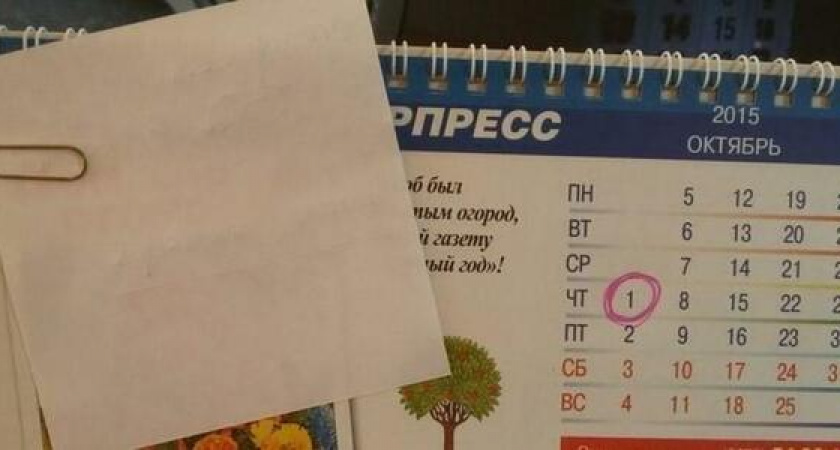 РПРЕСС
2015
ОКТЯБРЬ
об был
тым огород,
й газету
ный год»!
ПН 5 12 19
ВТ 6 13 20
СР 7 14 21
ЧТ 1 8 15 22
ПТ 2 9 16 23
СБ 3 10 17 24
ВС 4 11 18 25